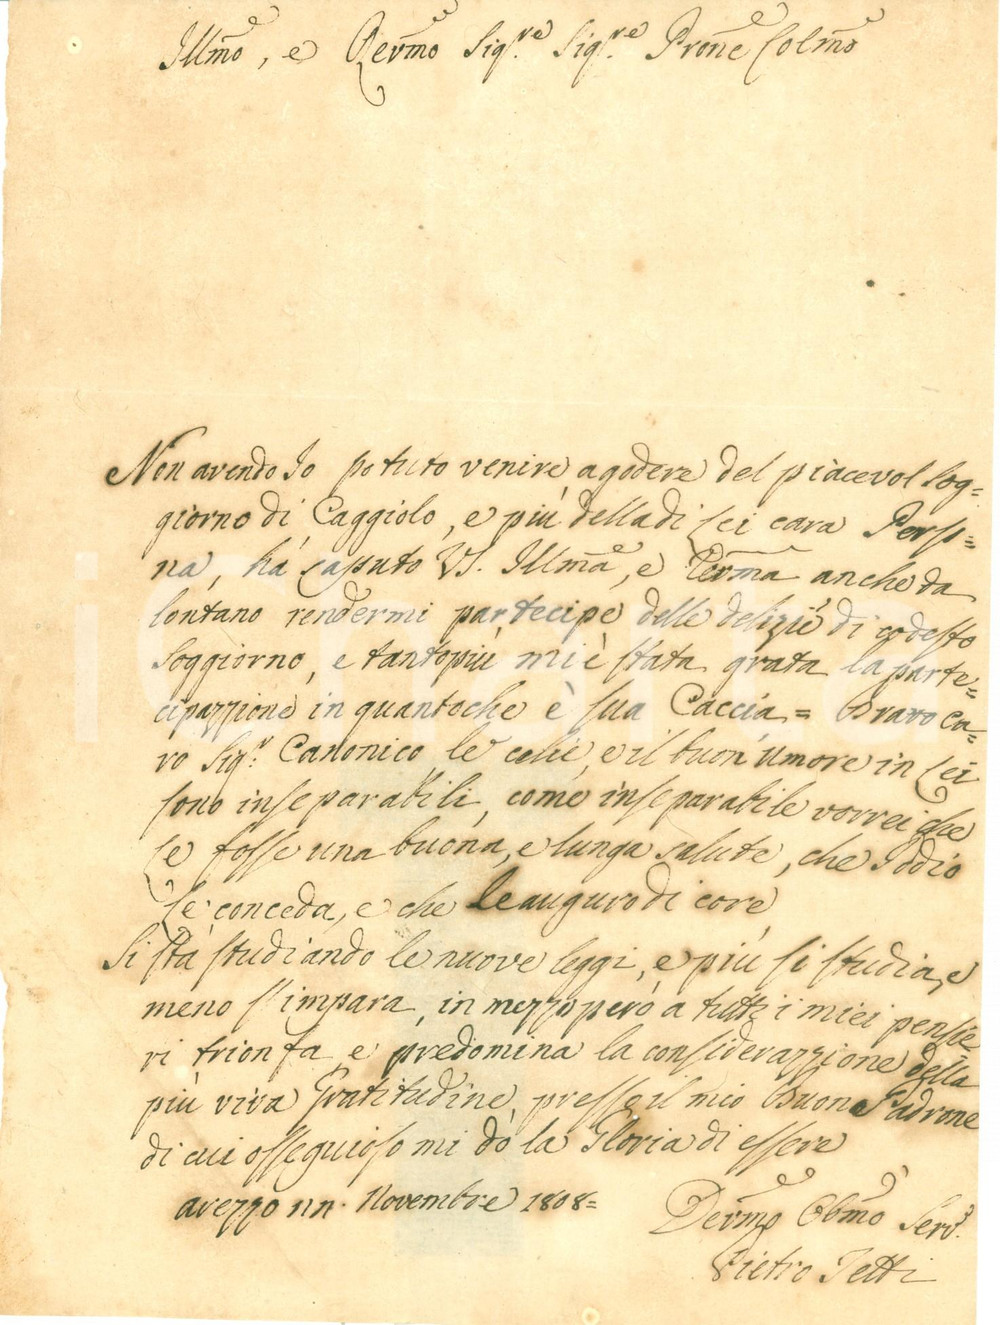 Illmo, e Revmo Sigre Sigre Prone Colmo
Non avendo Io potuto venire a godere del piacevol sog=
giorno di Caggiolo, e più della di Lei cara Perso=
na, há saputo VS. Illma, e Revma anche da
lontano rendermi partecipe delle delizie di codesto
soggiorno, e tanto più mi è stata grata la parte=
cipazzione in quantoche è sua Caccia= Bravo Ca=
ro Sigr. Canonico le celie, e il buon umore in Lei
sono inseparabili, come inseparabile vorrei che
Le fosse una buona, e lunga salute, che Iddio
Le conceda, e che Le auguro di core
Si stà studiando le nuove leggi, e più si studia, e
meno s'impara, in mezzo però a tutti i miei pensie
ri trionfa e predomina la considerazzione della
più viva Gratitudine presso il mio Buon Padrone
di cui ossequioso mi dò la Gloria di essere
Arezzo 11. Novembre 1808=
Devmo Obmo Serv.
Pietro Tetti